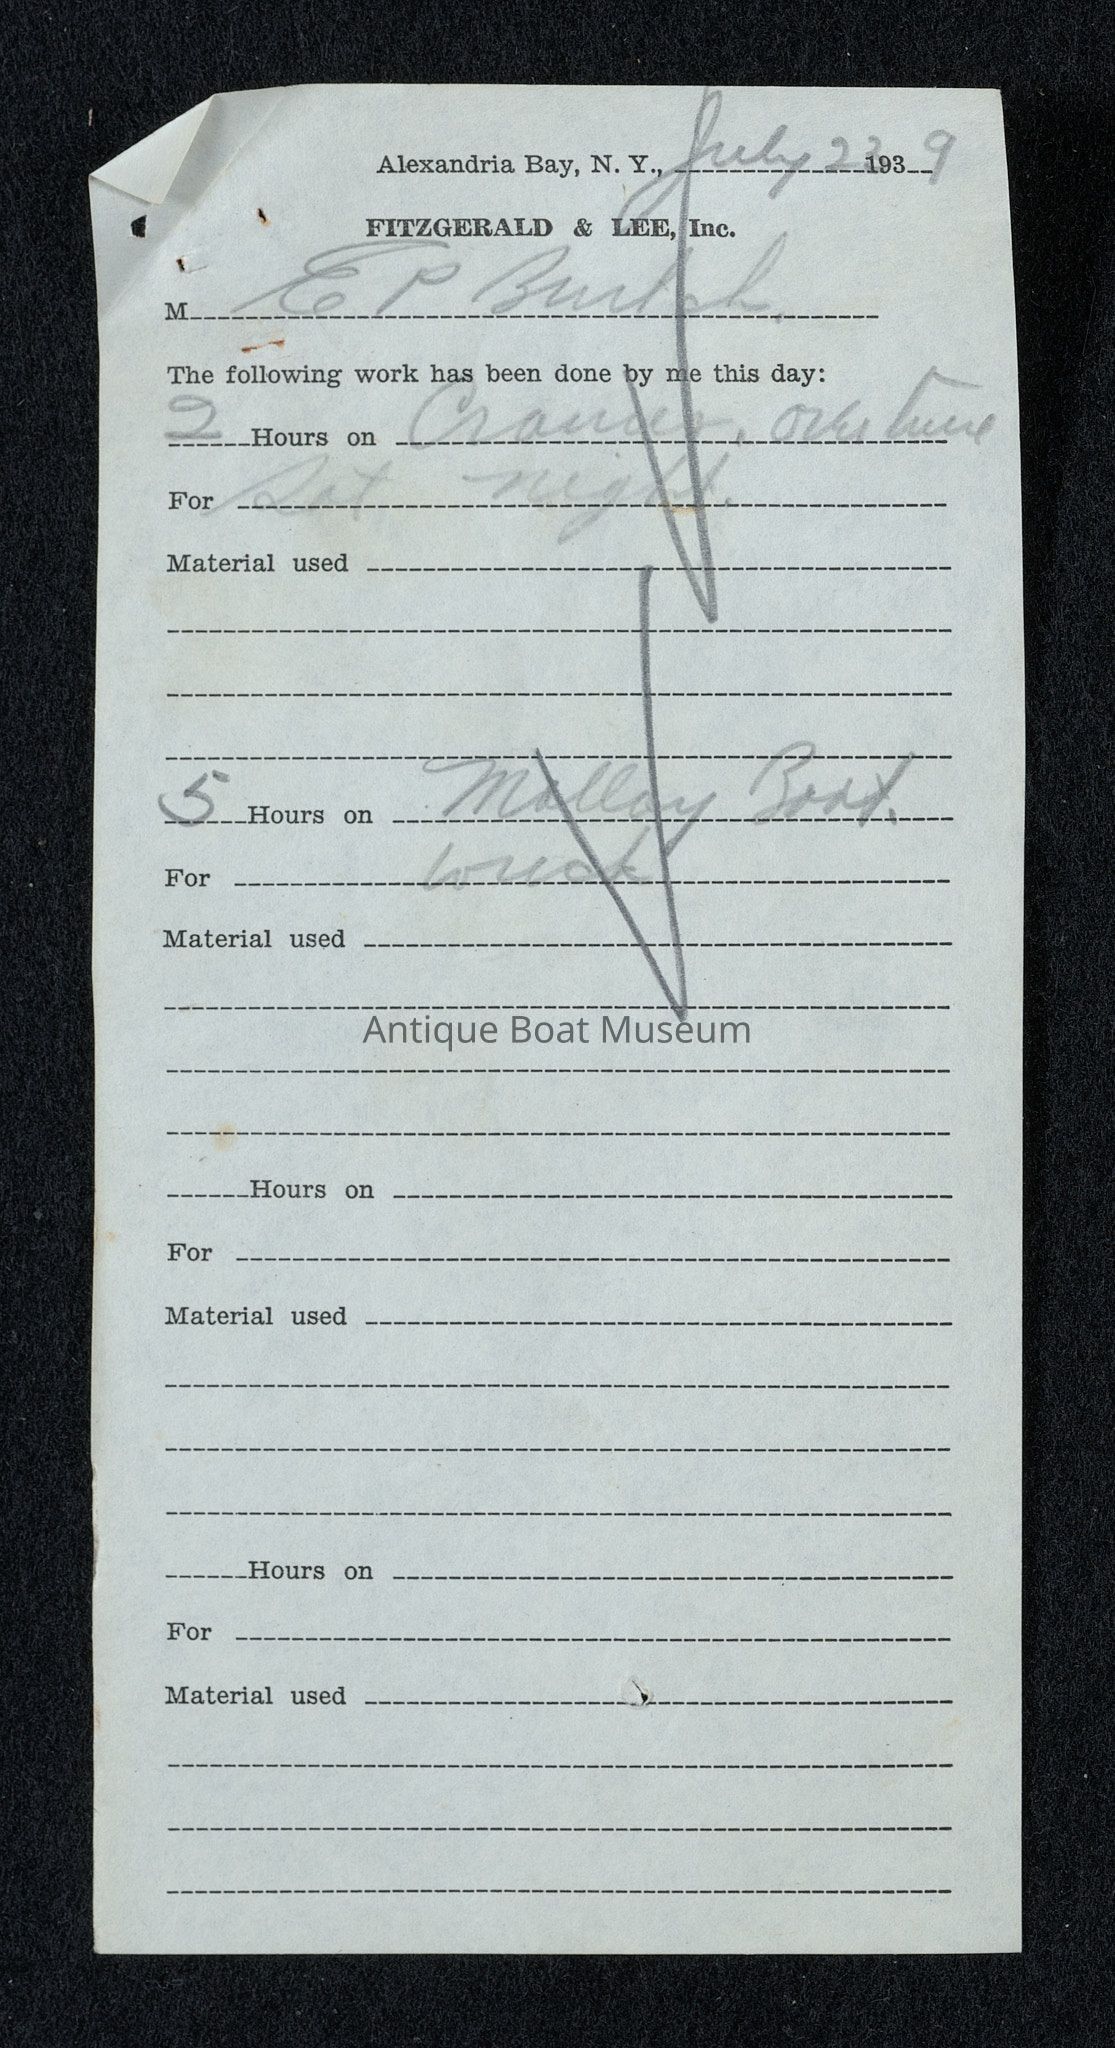 Alexandria Bay, N. Y., July 23 1939
FITZGERALD & LEE, Inc.
M E P Burtch.
The following work has been done by me this day:
2 Hours on overtime
For Sat night.
Material used
5 Hours on Mallory Boat.
For wreck
Material used
Antique Boat Museum
Hours on
For
Material used
Hours on
For
Material used